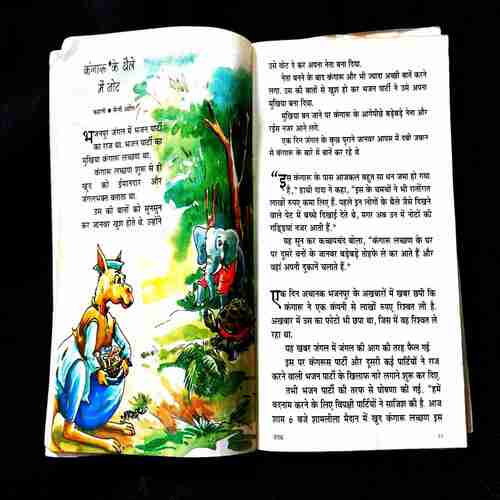 कंगारू के थैले
में नोट
कहानी •
भजनपुर जंगल में भजन पार्टी
का राज था. भजन पार्टी का
मुखिया कंगारू लच्छण था.
कंगारू लच्छण शुरू से ही
खुद को ईमानदार और
जंगलभक्त बताता था.
उस की बातों को सुनसुन
कर जानवर खुश होते थे. उन्होंने
उसे वोट दे कर अपना नेता बना दिया.
नेता बनने के बाद कंगारू और भी ज्यादा अच्छी बातें करने
लगा. उस की बातों से खुश हो कर भजन पार्टी ने उसे अपना
मुखिया बना दिया.
मुखिया बन जाने पर कंगारू के आगेपीछे बड़ेबड़े नेता और
रईस नजर आने लगे.
एक दिन जंगल के कुछ पुराने जानवर आपस में दबी जबान
से कंगारू के बारे में बातें कर रहे थे.
“इस कंगारू के पास आजकल बहुत सा धन जमा हो गया
है,” हाथी दादा ने कहा, “इस के चमचों ने भी रातोंरात
लाखों रुपए कमा लिए हैं. पहले इन लोगों के थैले जैसे दिखने
वाले पेट में बच्चे दिखाई देते थे, मगर अब उन में नोटों की
गड्डियां नजर आती हैं.”
यह सुन कर कच्छपचंद बोला, “कंगारू लच्छण के घर
पर दूसरे वनों के जानवर बड़ेबड़े तोहफे ले कर आते हैं और
वहां अपनी दुकानें चलाते हैं.”
एक दिन अचानक भजनपुर के अखबारों में खबर छपी कि
कंगारू ने एक कंपनी से लाखों रुपए रिश्वत ली है.
अखबार में उस का फोटो भी छपा था, जिस में वह रिश्वत ले
रहा था.
यह खबर जंगल में जंगल की आग की तरह फैल गई.
इस पर कंगरूस पार्टी और दूसरी कई पार्टियों ने राज
करने वाली भजन पार्टी के खिलाफ नारे लगाने शुरू कर दिए.
तभी भजन पार्टी की तरफ से घोषणा की गई, “हमें
बदनाम करने के लिए विपक्षी पार्टियों ने साजिश की है. आज
शाम 6 बजे शामलीला मैदान में खुद कंगारू लच्छण इस